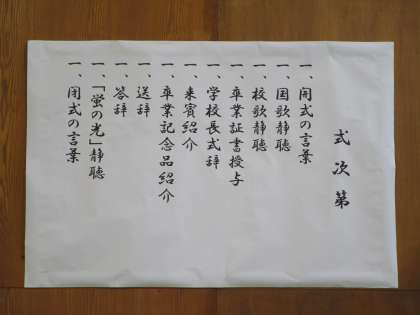 式次第
一、開式の言葉
一、国歌静聴
一、校歌静聴
一、卒業証書授与
一、学校長式辞
一、来賓紹介
一、卒業記念品紹介
一、送辞
一、答辞
一、「蛍の光」静聴
一、閉式の言葉